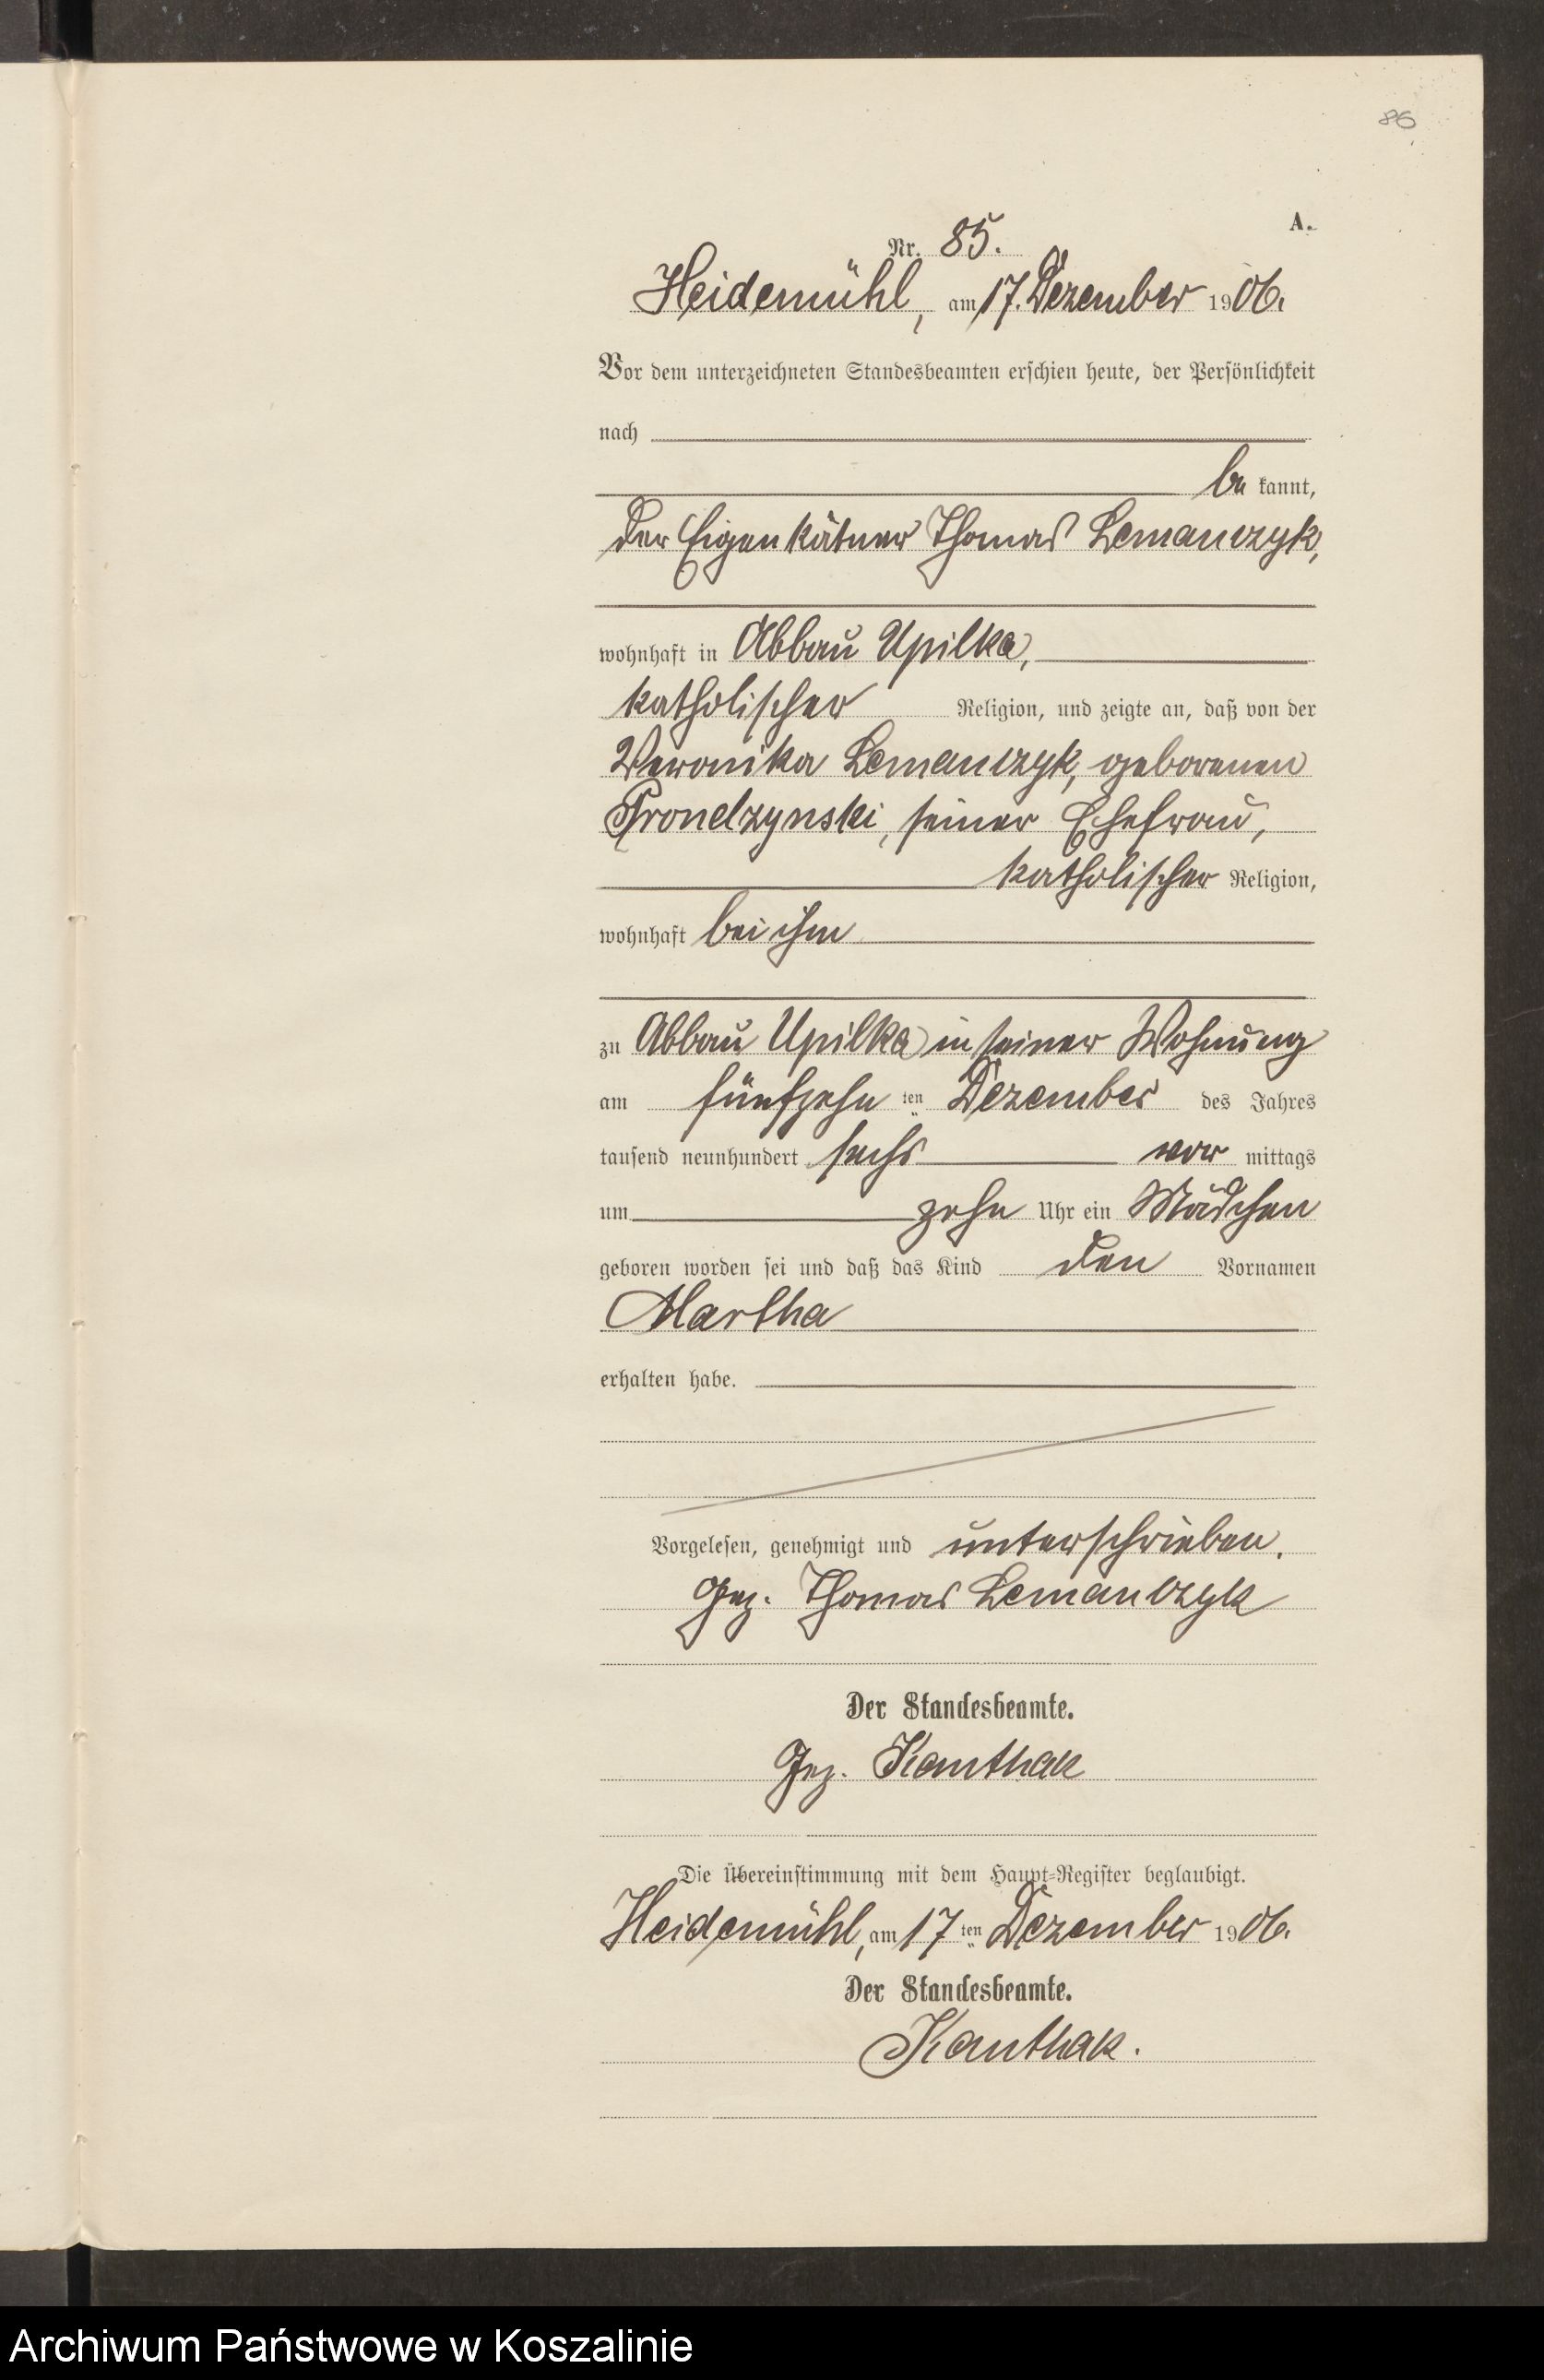 86
A.
Nr. 85.
Heidemühl, am 17. Dezember 1906.
Vor dem unterzeichneten Standesbeamten erschien heute, der Persönlichkeit
nach
be kannt,
der Eigenkätner Thomas Lemanczyk,
wohnhaft in Abbau Upilka,
katholischer Religion, und zeigte an, daß von der
Veronika Lemanczyk, geborenen
Prondzynski, seiner Ehefrau,
katholischer Religion,
wohnhaft bei ihm
zu Abbau Upilka in seiner Wohnung
am fünfzehn ten Dezember des Jahres
tausend neunhundert sechs vor mittags
um zehn Uhr ein Mädchen
geboren worden sei und daß das Kind den Vornamen
Martha
erhalten habe.
Vorgelesen, genehmigt und unterschrieben.
Gez. Thomas Lemanczyk
Der Standesbeamte.
Gez. Kanthak
Die Übereinstimmung mit dem Haupt-Register beglaubigt.
Heidemühl, am 17 ten Dezember 1906.
Der Standesbeamte.
Kanthak.
Archiwum Państwowe w Koszalinie